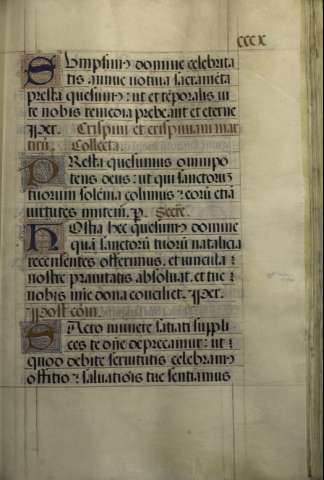 cccx
Sumpsim9 domine celebrita
tis annue votiva sacrameta
presta quesum9: ut et teporalis vi
te nobis remedia prebeant et eterne
p per. Crispini et crispiniani mar
tiru. Collecta.
Presta quesumus omnipo
tens deus: ut qui sanctorum
tuorum solenia colimus: eoru etia
virtutes imitem. p. Secre.
Hostia hec quesum9 domine
qua sanctoru tuoru natalicia
recensentes offerimus. et vincula
nostre pravitatis absolvat. et tue
nobis mie dona conciliet. p per.
post com.
Sacro munere satiati suppli
ces te dne deprecamur: ut
quod debite servitutis celebram9
officio: salvatiois tue sentiamus